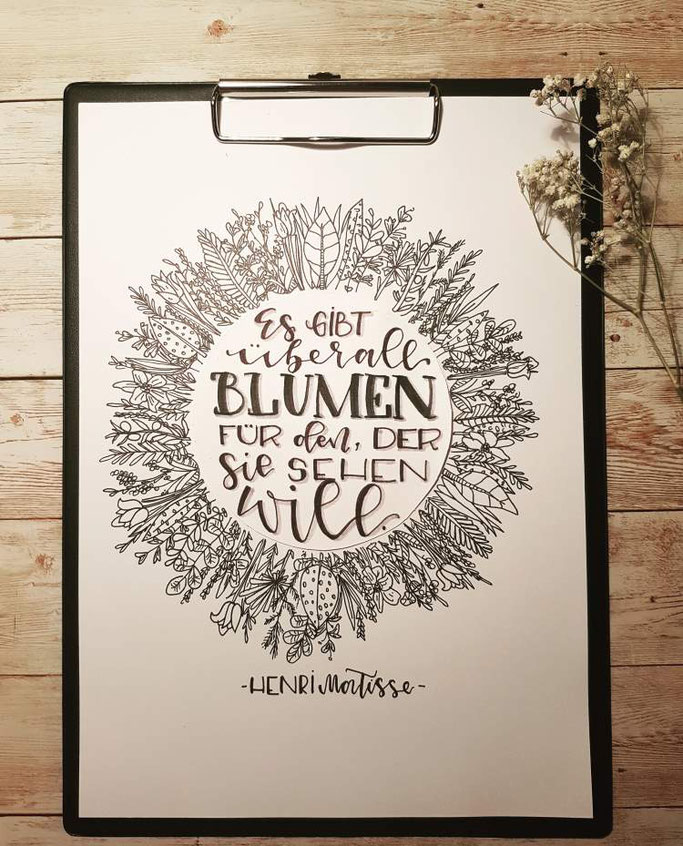 Es GIBT
überall
BLUMEN
FÜR den, DER
sie SEHEN
will.
-HENRI Matisse-